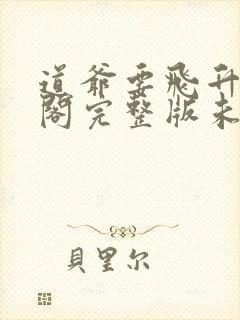 道爺要飛升
閣完整版未
貝里尔